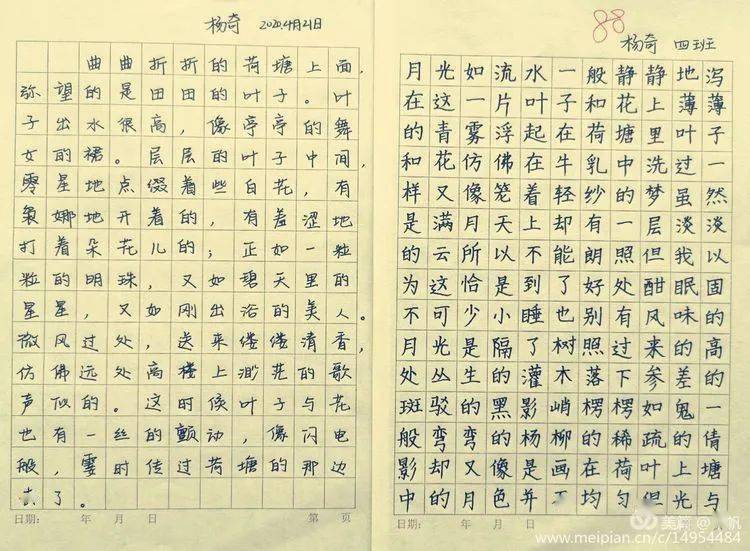 杨奇 2020.4月21日
曲曲折折的荷塘上面,
弥望的是田田的叶子。叶
子出水很高,像亭亭的舞
女的裙。层层的叶子中间,
零星地点缀着些白花,有
袅娜地开着的,有羞涩地
打着朵花儿的;正如一粒
粒的明珠,又如碧天里的
星星,又如刚出浴的美人。
微风过处,送来偻偻清香,
仿佛远处高楼上渺茫的歌
声似的。这时候叶子与花
也有一丝的颤动,像闪电
般,霎时传过荷塘的那边
去了。
日期: 年 月 日 第 页
88
杨奇 四班
月光如流水一般静静地泻
在这一片叶子和花上薄薄
的青雾浮起在荷塘里叶子
和花仿佛在牛乳中洗过一
样又像笼着轻纱的梦虽然
是满月天上却有一层淡淡
的云所以不能朗照但我以
为这恰是到了好处酣眠固
不可少小睡也别有风味的
月光是隔了树照过来的高
处丛生的灌木落下参差的
斑驳的黑影峭楞楞如鬼一
般弯弯的杨柳的稀疏的倩
影却又像是画在荷叶上塘
中的月色并不均匀但光与
日期: 年 月 日
美篇@ 帆
www.meipian.cn/c/14954484